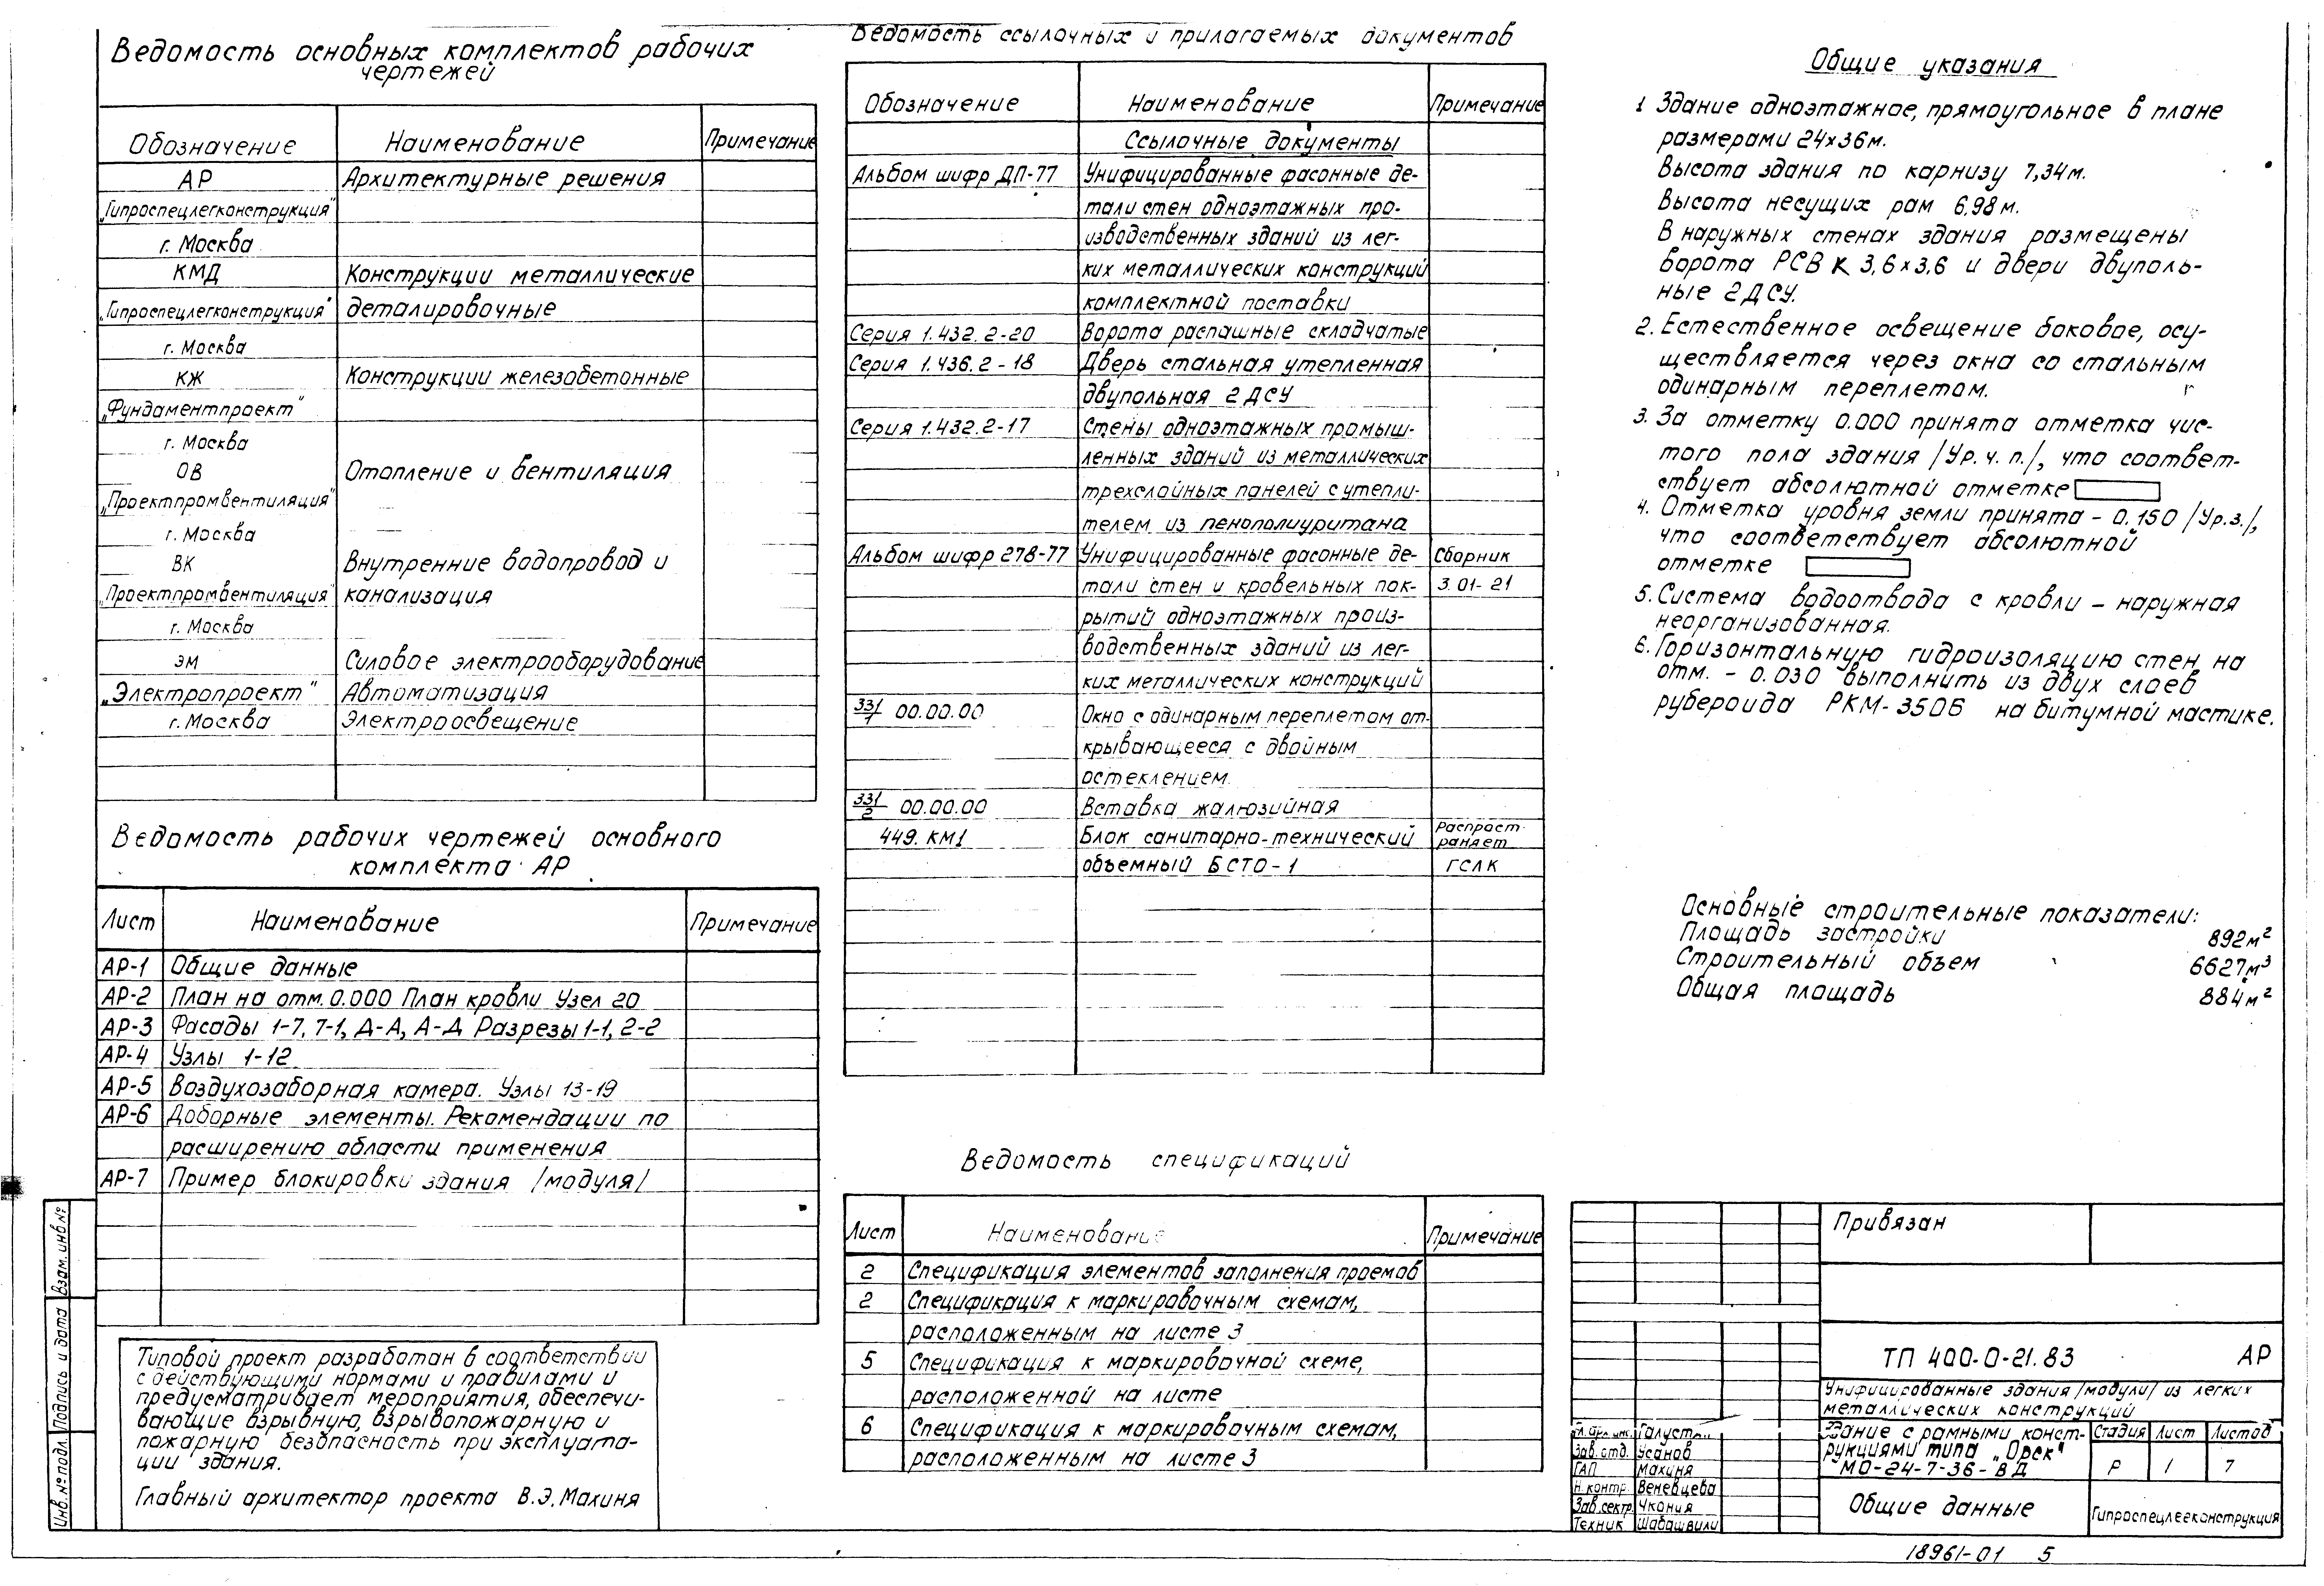 Ведомость основных комплектов рабочих
чертежей
Обозначение Наименование Примечание
АР Архитектурные решения
„Гипроспецлегконструкция"
г. Москва
КМД Конструкции металлические
„Гипроспецлегконструкция" деталировочные
г. Москва
КЖ Конструкции железобетонные
„Фундаментпроект"
г. Москва
ОВ Отопление и вентиляция
„Проектпромвентиляция"
г. Москва
ВК Внутренние водопровод и
„Проектпромвентиляция" канализация
г. Москва
ЭМ Силовое электрооборудование
„Электропроект" Автоматизация
г. Москва Электроосвещение
Ведомость рабочих чертежей основного
комплекта АР
Лист Наименование Примечание
АР-1 Общие данные
АР-2 План на отм. 0.000 План кровли Узел 20
АР-3 Фасады 1-7, 7-1, Д-А, А-Д Разрезы 1-1, 2-2
АР-4 Узлы 1-12
АР-5 Воздухозаборная камера. Узлы 13-19
АР-6 Доборные элементы. Рекомендации по
расширению области применения
АР-7 Пример блокировки здания /модуля/
Типовой проект разработан в соответствии
с действующими нормами и правилами и
предусматривает мероприятия, обеспечи-
вающие взрывную, взрывопожарную и
пожарную безопасность при эксплуата-
ции здания.
Главный архитектор проекта В.Э. Махиня
Взам. инв №
Подпись и дата
Инв. № подл.
Ведомость ссылочных и прилагаемых документов
Обозначение Наименование Примечание
Ссылочные документы
Альбом шифр ДП-77 Унифицированные фасонные де-
тали стен одноэтажных про-
изводственных зданий из лег-
ких металлических конструкций
комплектной поставки
Серия 1.432.2-20 Ворота распашные складчатые
Серия 1.436.2-18 Дверь стальная утепленная
двупольная 2ДСУ
Серия 1.432.2-17 Стены одноэтажных промыш-
ленных зданий из металлических
трехслойных панелей с утепли-
телем из пенополиуритана
Альбом шифр 278-77 Унифицированные фасонные де- Сборник
тали стен и кровельных пок- 3.01-21
рытий одноэтажных произ-
водственных зданий из лег-
ких металлических конструкций
331/1 00.00.00 Окно с одинарным переплетом от-
крывающееся с двойным
остеклением.
331/2 00.00.00 Вставка жалюзийная
449. КМ1 Блок санитарно-технический Распрост-
раняет
объемный БСТО-1 ГСЛК
Ведомость спецификаций
Лист Наименование Примечание
2 Спецификация элементов заполнения проемов
2 Спецификация к маркировочным схемам,
расположенным на листе 3
5 Спецификация к маркировочной схеме,
расположенной на листе
6 Спецификация к маркировочным схемам,
расположенным на листе 3
Общие указания
1 Здание одноэтажное, прямоугольное в плане
размерами 24х36м.
Высота здания по карнизу 7,34м.
Высота несущих рам 6,98м.
В наружных стенах здания размещены
ворота РСВК 3,6х3,6 и двери двуполь-
ные 2ДСУ.
2. Естественное освещение боковое, осу-
ществляется через окна со стальным
одинарным переплетом.
3. За отметку 0.000 принята отметка чис-
того пола здания /Ур. ч. п./, что соответ-
ствует абсолютной отметке
4. Отметка уровня земли принята - 0.150 /Ур.з./,
что соответствует абсолютной
отметке
5. Система водоотвода с кровли - наружная
неорганизованная.
6. Горизонтальную гидроизоляцию стен на
отм. - 0.030 выполнить из двух слоев
рубероида РКМ-350Б на битумной мастике.
Основные строительные показатели:
Площадь застройки 892м²
Строительный объем 6627м³
Общая площадь 884м²
Привязан
ТП 400-0-21.83 АР
Унифицированные здания /модули/ из легких
металлических конструкций
Здание с рамными конст-
рукциями типа „Орск"
МО-24-7-36-ВД
Стадия Лист Листов
Р 1 7
Общие данные
Гипроспецлегконструкция
Зав. отд. Усанов
ГАП Махиня
Н. контр. Веневцева
Зав. сект. Чкония
Техник Шабашвили
18961-01 5